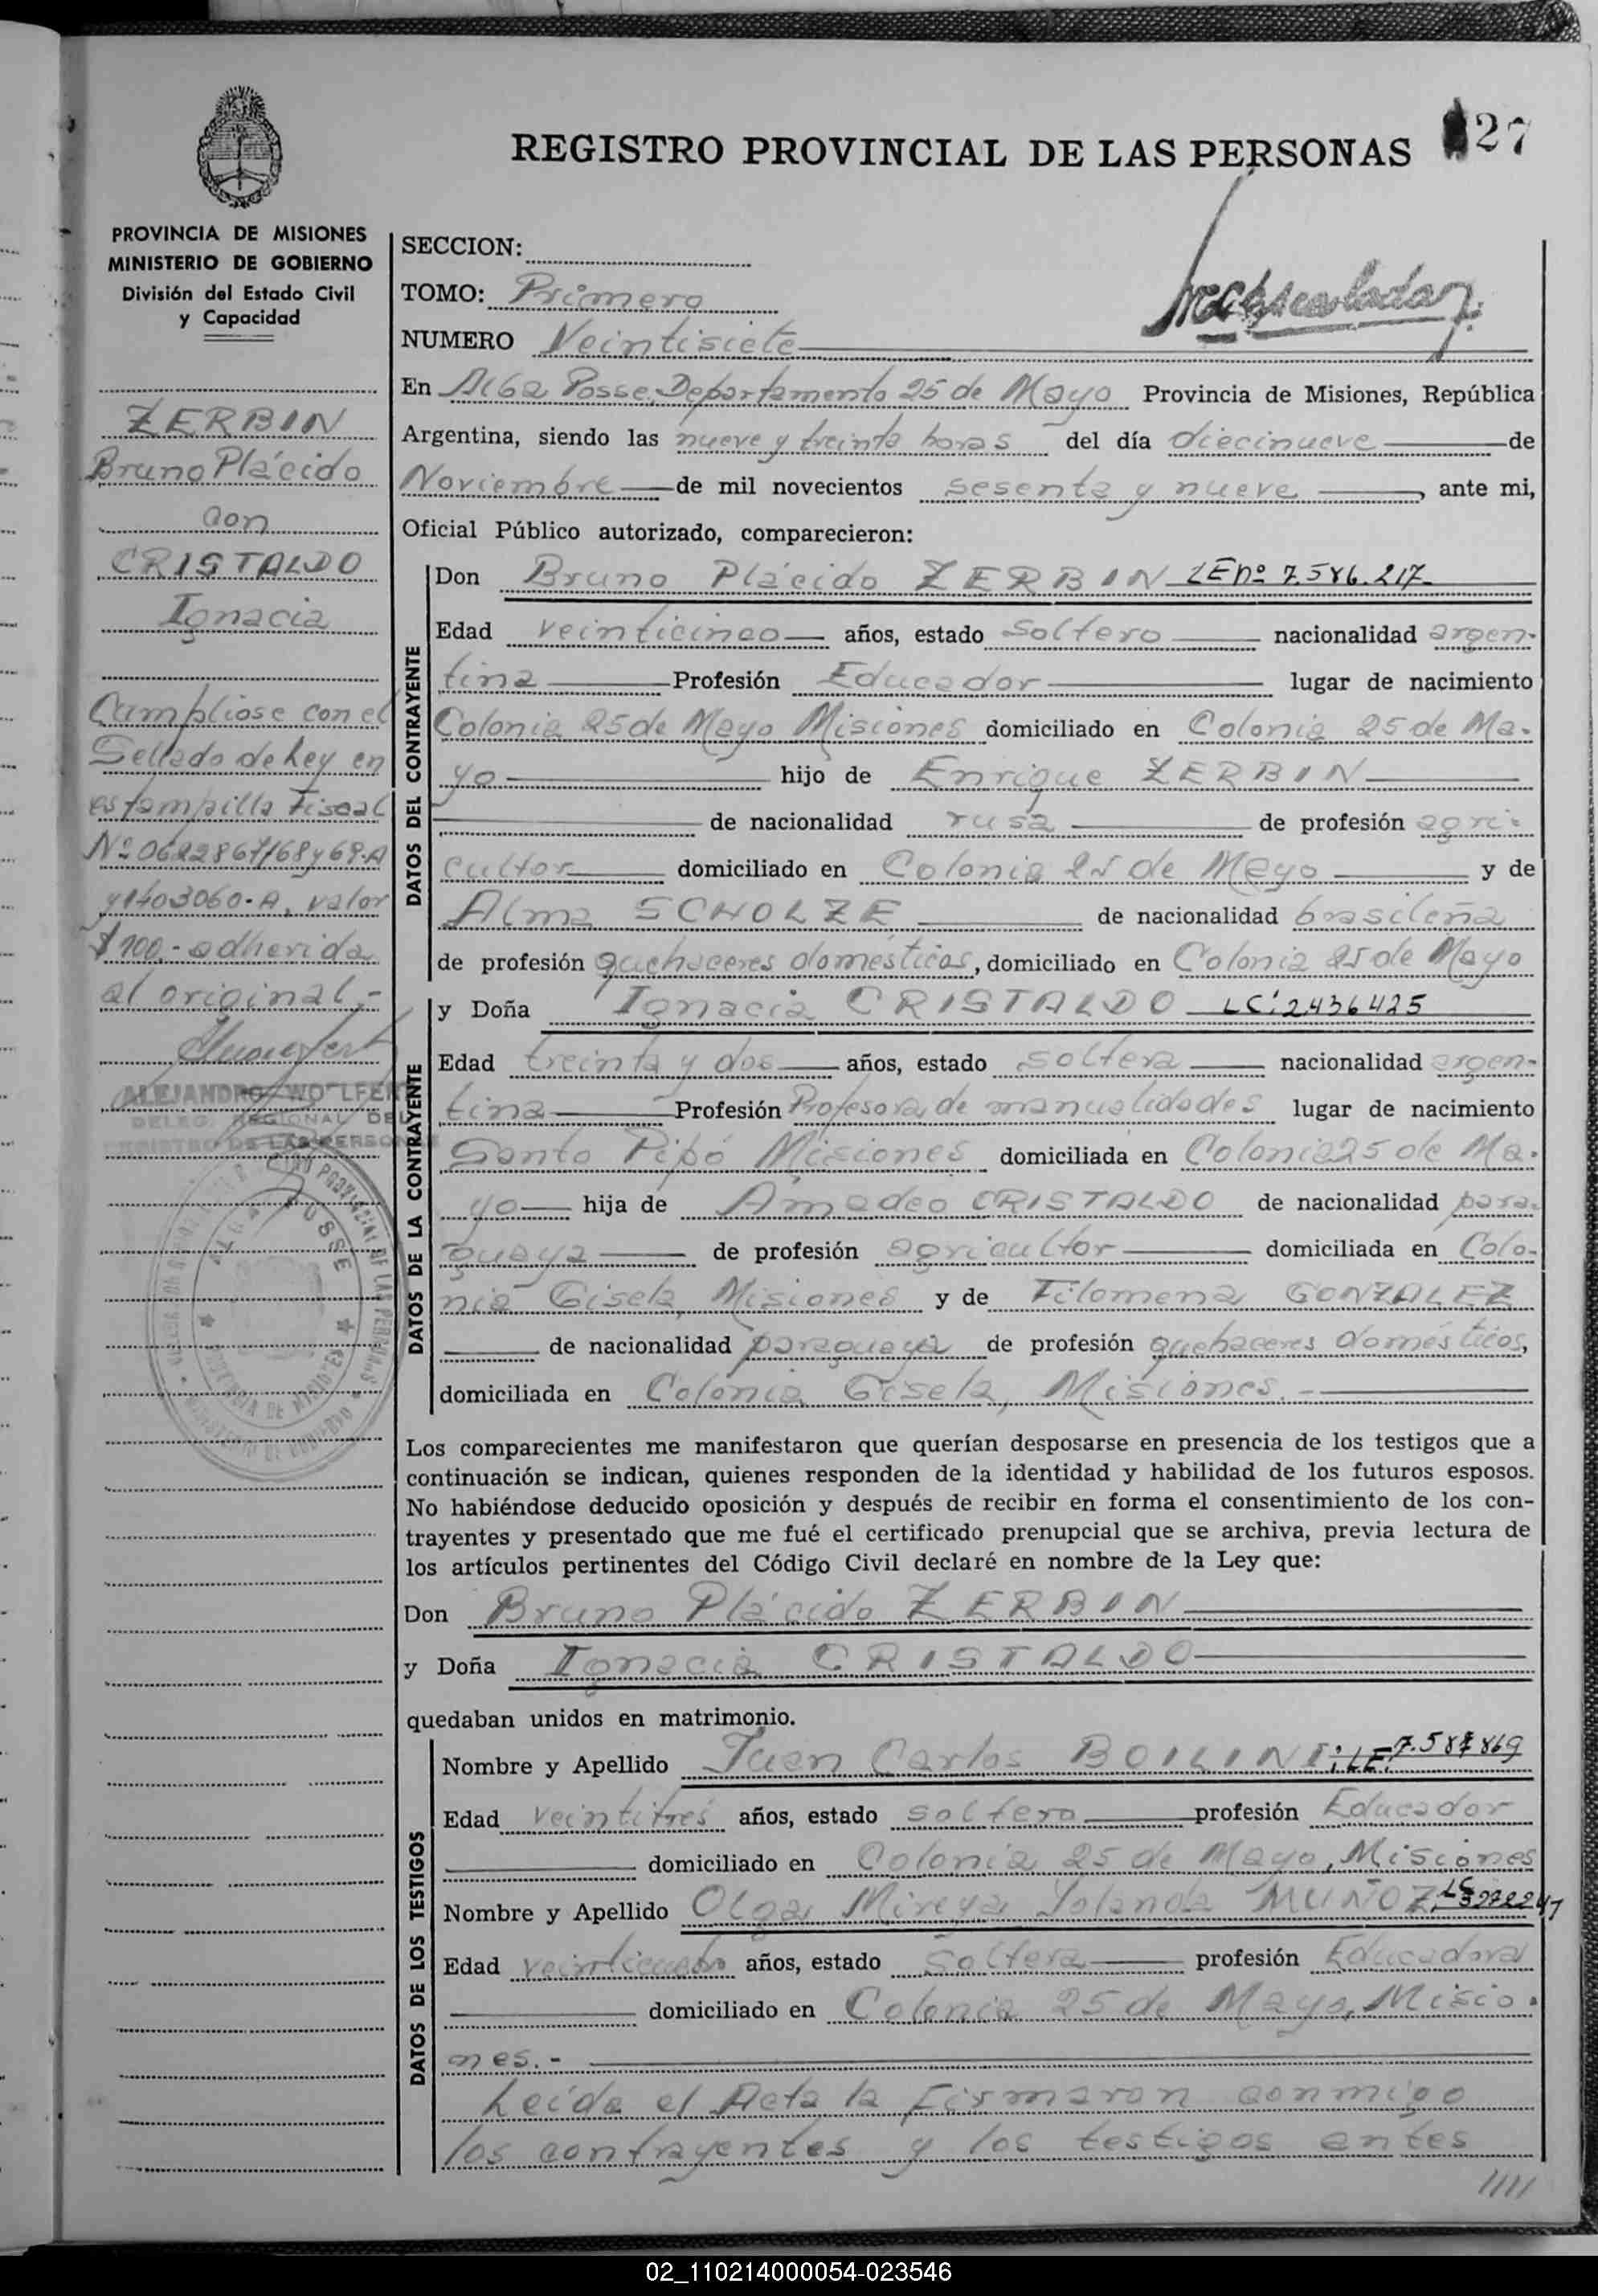 27
REGISTRO PROVINCIAL DE LAS PERSONAS
PROVINCIA DE MISIONES
MINISTERIO DE GOBIERNO
División del Estado Civil
y Capacidad
ZERBIN
Bruno Plácido
con
CRISTALDO
Ignacia
Cumpliose con el
Sellado de Ley en
estampilla Fiscal
Nº 0622867/68 y 69-A
y 1403060-A, valor
$ 100.- adherida
al original.-
ALEJANDRO WOLFE
DELEG. REGIONAL DEL
REGISTRO DE LAS PERSON
SECCION:
TOMO: Primero
NUMERO Veintisiete
En Alba Posse, Departamento 25 de Mayo Provincia de Misiones, República
Argentina, siendo las nueve y treinta horas del día diecinueve de
Noviembre de mil novecientos sesenta y nueve, ante mi,
Oficial Público autorizado, comparecieron:
DATOS DEL CONTRAYENTE
Don Bruno Plácido ZERBIN LE nº 7.586.217
Edad veinticinco años, estado soltero nacionalidad argen-
tina Profesión Educador lugar de nacimiento
Colonia 25 de Mayo Misiones domiciliado en Colonia 25 de Ma-
yo hijo de Enrique ZERBIN
de nacionalidad rusa de profesión agri-
cultor domiciliado en Colonia 25 de Mayo y de
Alma SCHOLZE de nacionalidad brasileña
de profesión quehaceres domésticos, domiciliado en Colonia 25 de Mayo
DATOS DE LA CONTRAYENTE
y Doña Ignacia CRISTALDO LC: 2.436425
Edad treinta y dos años, estado soltera nacionalidad argen-
tina Profesión Profesora de manualidades lugar de nacimiento
Santo Pipó Misiones domiciliada en Colonia 25 de Ma-
yo hija de Amadeo CRISTALDO de nacionalidad para-
guaya de profesión agricultor domiciliada en Colo-
nia Gisela, Misiones y de Filomena GONZALEZ
de nacionalidad paraguaya de profesión quehaceres domésticos,
domiciliada en Colonia Gisela, Misiones.-
Los comparecientes me manifestaron que querían desposarse en presencia de los testigos que a
continuación se indican, quienes responden de la identidad y habilidad de los futuros esposos.
No habiéndose deducido oposición y después de recibir en forma el consentimiento de los con-
trayentes y presentado que me fué el certificado prenupcial que se archiva, previa lectura de
los artículos pertinentes del Código Civil declaré en nombre de la Ley que:
Don Bruno Plácido ZERBIN
y Doña Ignacia CRISTALDO
quedaban unidos en matrimonio.
DATOS DE LOS TESTIGOS
Nombre y Apellido Juan Carlos BOILINI; LE.
Edad veintitrés años, estado soltero profesión Educador
domiciliado en Colonia 25 de Mayo, Misiones
Nombre y Apellido Olga Mireya Iolanda MUÑOZ, LC
Edad veinticuatro años, estado soltera profesión Educadora
domiciliado en Colonia 25 de Mayo, Misio-
nes.-
Leída el Acta la firmaron conmigo
los contrayentes y los testigos antes
////
02_110214000054-023546